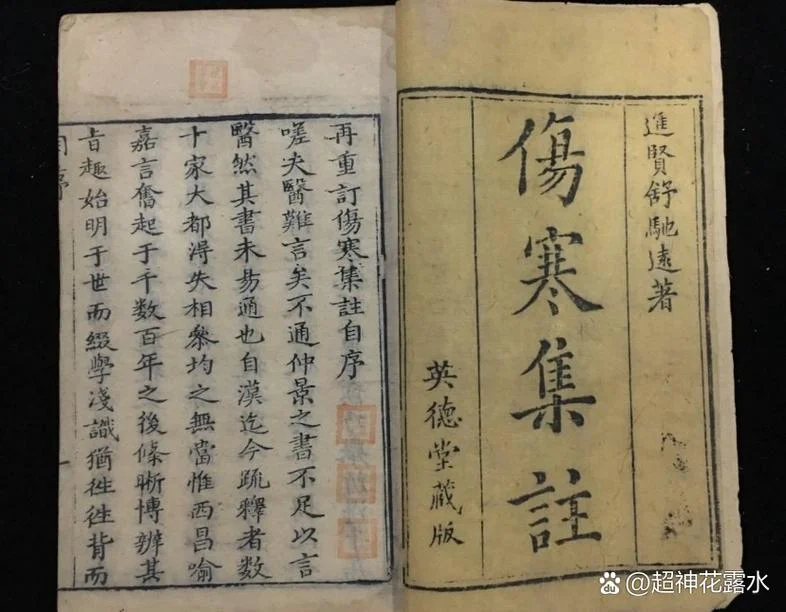 進賢舒馳遠著
傷寒集註
英德堂藏版
再重訂傷寒集註自序
嗟夫醫難言矣不通仲景之書不足以言
醫然其書未易通也自漢迄今疏釋者數
十家大都得失相叅均之無當惟西昌喻
嘉言奮起于千數百年之後條晰博辨其
旨趣始明于世而綴學淺識猶徃徃背而
自序
一
@超神花露水